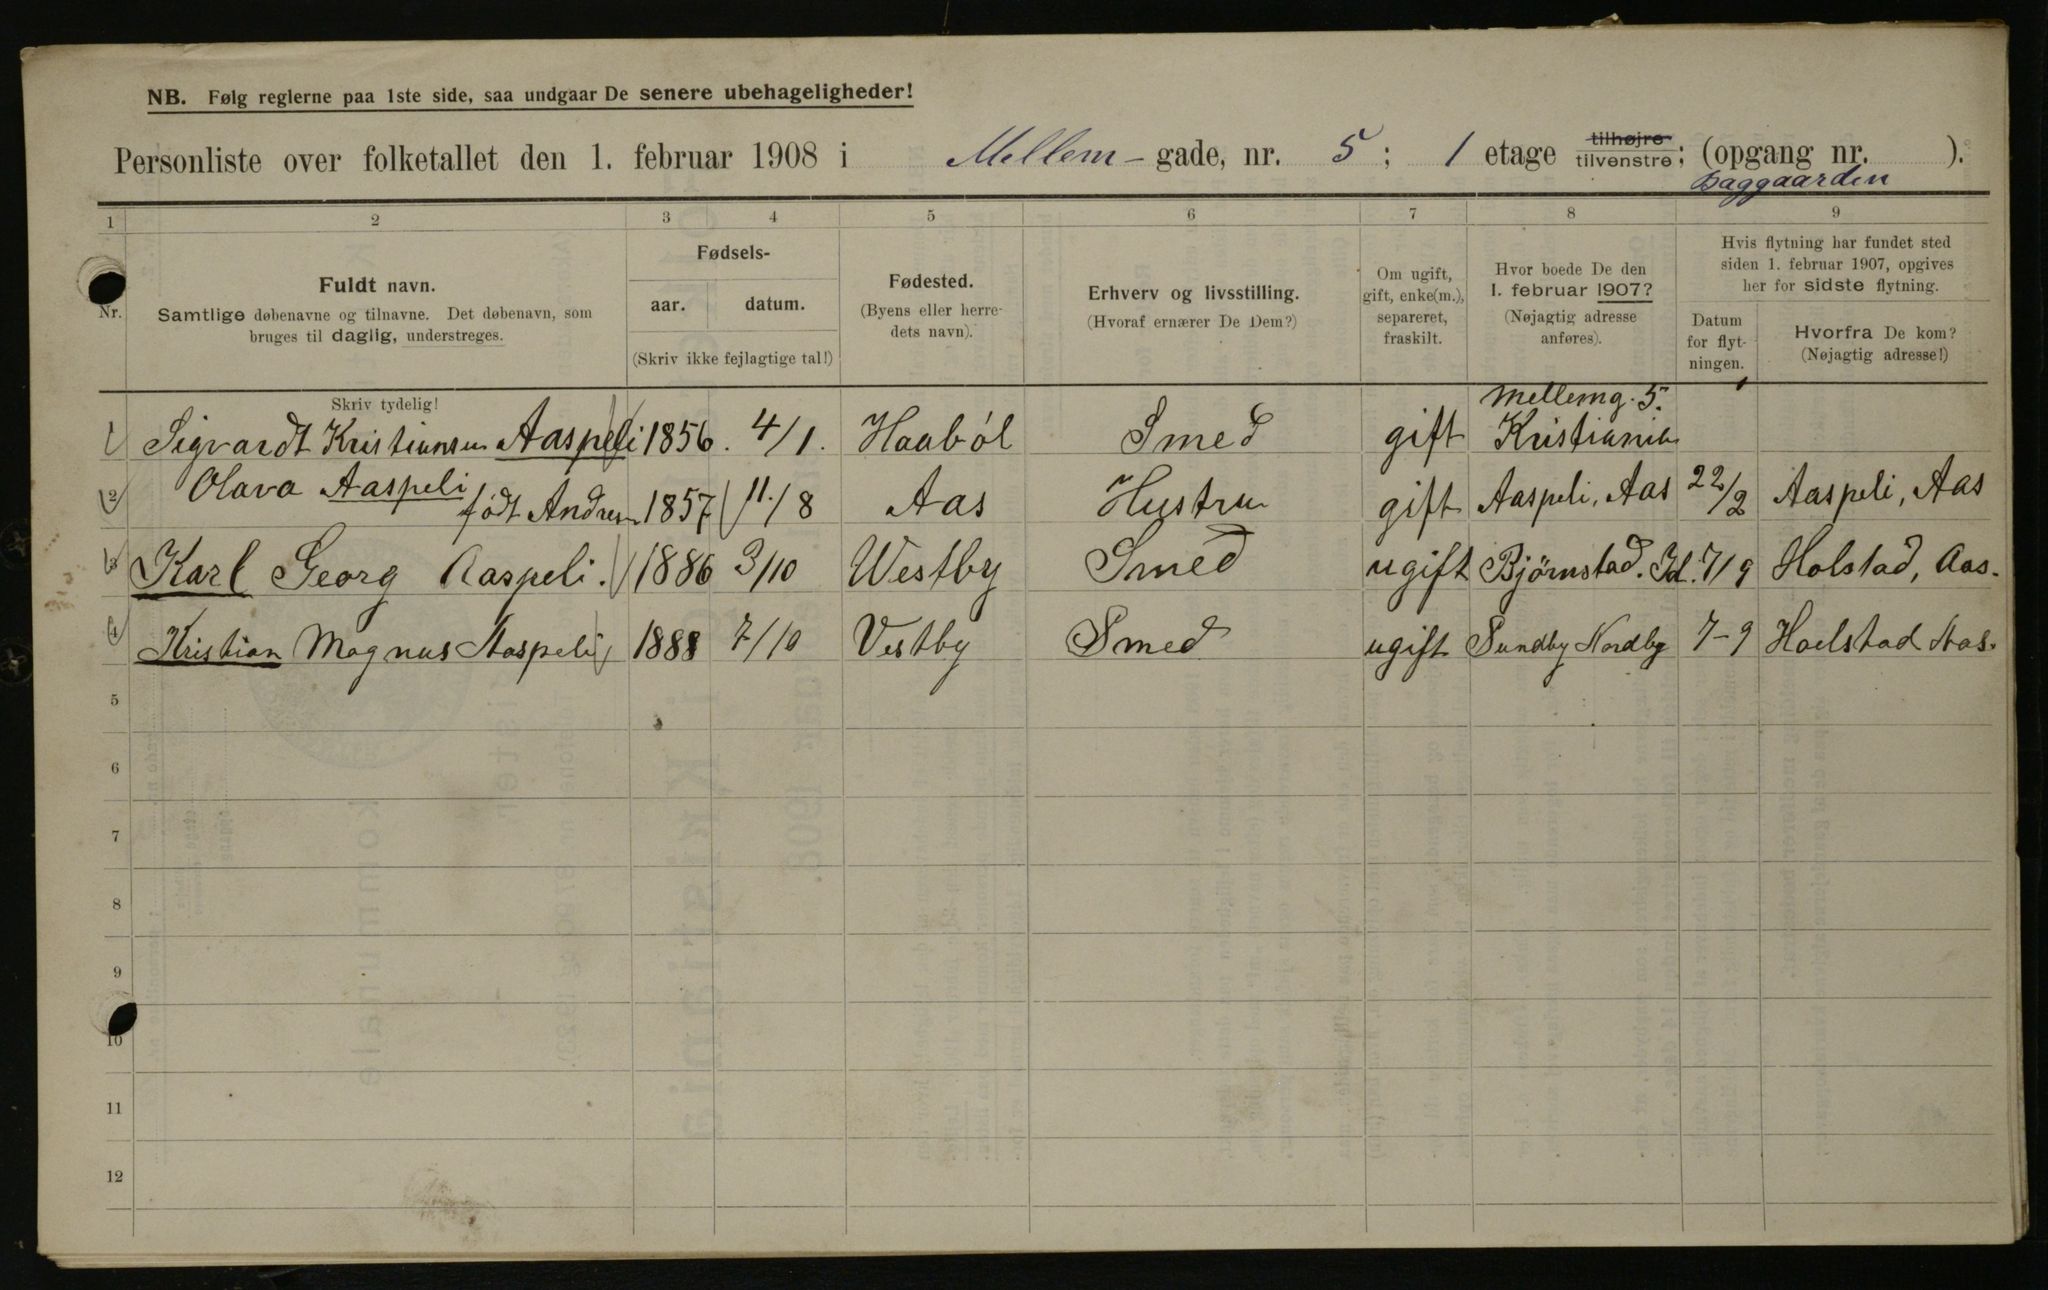 NB. Følg reglerne paa 1ste side, saa undgaar De senere ubehageligheder!
Personliste over folketallet den 1. februar 1908 i Mellem- gade, nr. 5; 1 etage tilhøjre tilvenstre; (opgang nr. ).
Baggaarden
1 2 3 4 5 6 7 8 9
Nr.
Fuldt navn.
Samtlige døbenavne og tilnavne. Det døbenavn, som
bruges til daglig, understreges.
Fødsels-
aar. datum.
(Skriv ikke fejlagtige tal!)
Fødested.
(Byens eller herre-
dets navn).
Erhverv og livsstilling.
(Hvoraf ernærer De Dem?)
Om ugift,
gift, enke(m.),
separeret,
fraskilt.
Hvor boede De den
1. februar 1907?
(Nøjagtig adresse
anføres).
Hvis flytning har fundet sted
siden 1. februar 1907, opgives
her for sidste flytning.
Datum
for flyt-
ningen.
Hvorfra De kom?
(Nøjagtig adresse!)
Skriv tydelig!
Mellemg. 5.
1 Sigvardt Kristiansen Aaspeli 1856. 4/1. Haaböl Smed gift Kristiania
2 Olava Aaspeli født Andresen 1857 11./8 Aas Hustru gift Aaspeli, Aas 22/2 Aaspeli, Aas
3 Karl Georg Aaspeli. 1886 3/10 Westby Smed ugift Björnstad. Id. 7/9 Holstad, Aas.
4 Kristian Magnus Aaspeli 1888 7/10 Vestby Smed ugift Sundby Nordby 7-9 Hoelstad Aas.
5
6
7
8
9
10
11
12